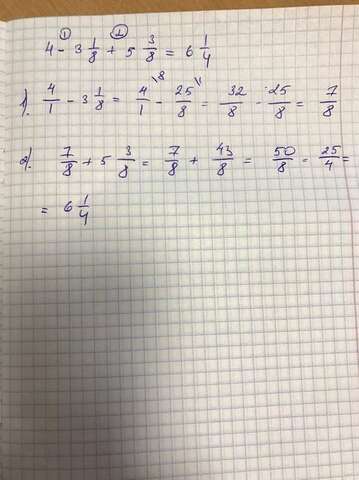 ① ②
4 - 3 1/8 + 5 3/8 = 6 1/4
1). 4/1 - 3 1/8 = 4/1 \8 - 25/8 \1 = 32/8 - 25/8 = 7/8
2). 7/8 + 5 3/8 = 7/8 + 43/8 = 50/8 = 25/4 =
= 6 1/4